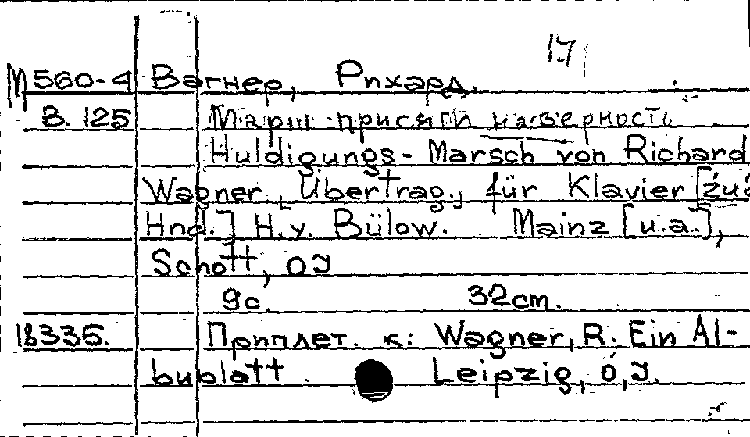 17
М560-4 Вагнер, Рихард.
В. 125 Марш присяги на верность
Huldigungs-Marsch von Richard
Wagner. Übertrag. für Klavier [zu
Hnd.] H. v. Bülow. Mainz [u.a.],
Schott, o J
9c. 32cm.
18335. Приплет. к: Wagner, R. Ein Al-
bublatt. Leipzig, o, J.